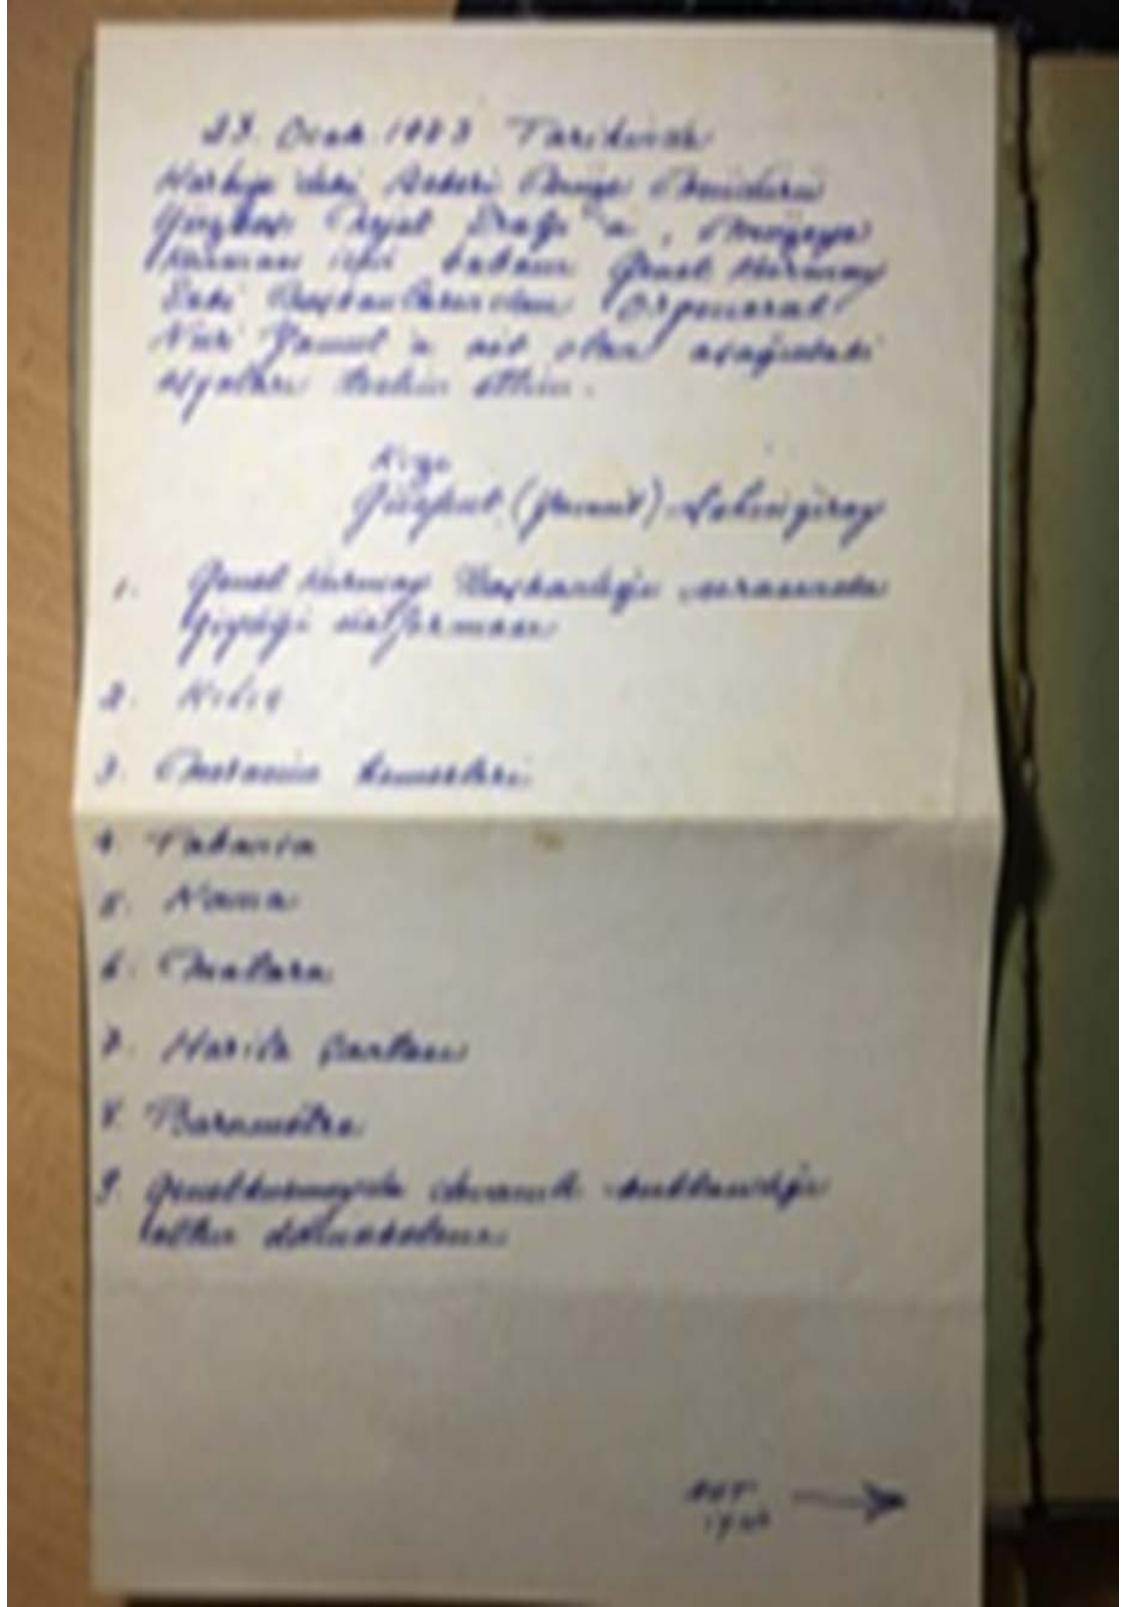 23. Ocak 1983 Tarihinde
Harbiye'deki Askeri Müze Müdürü
Yüzbaşı a, Müzeye
için babam Genel Kurmay
Eski Başkanlarından Orgeneral
Nuri Yamut'a ait olan aşağıdaki
eşyaları teslim ettim.
Kızı
(Yamut) Şahingiray
1. Genel Kurmay Başkanlığı sırasında
giydiği üniforması
2. Kılıç
3. Merasim kemerleri
4. Tabanca
5. Kama
6. Matara
7. Harita çantası
8. Barometre
9. Genelkurmayda devamlı kullandığı
altın dolmakalemi